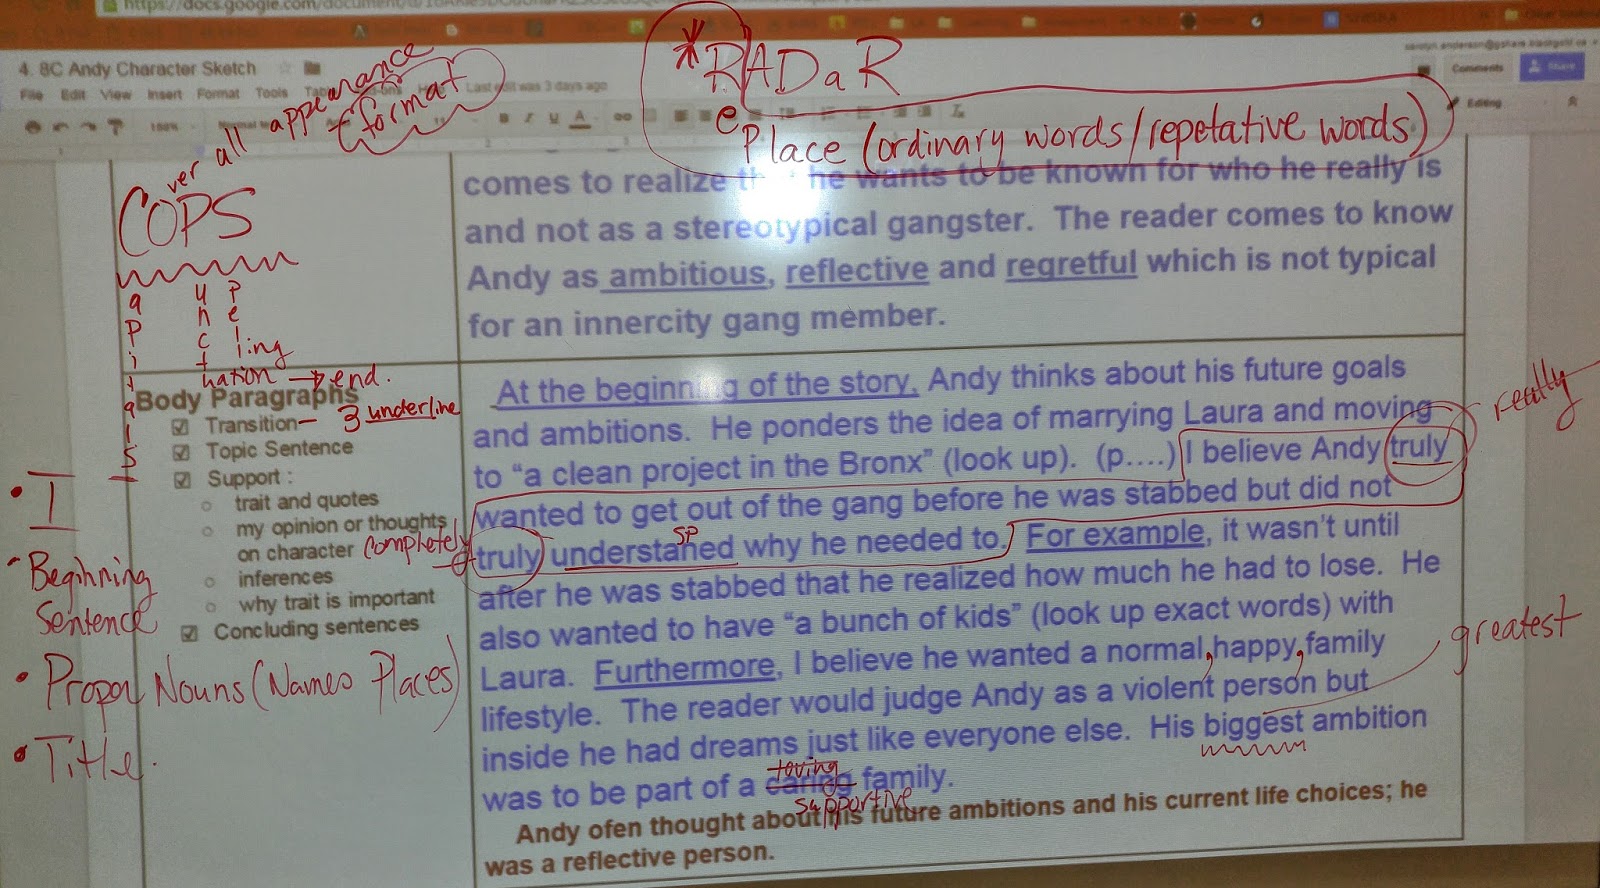 https://docs.google.com/document/d/
4. 8C Andy Character Sketch
File Edit View Insert Format Tools
Last edit was 3 days ago
Comments
Share
Editing
*RADaR
e
Place (ordinary words/repetative words)
over all appearance
+ format
COPS
apitals
unctuation → end.
pelling
comes to realize that he wants to be known for who he really is
and not as a stereotypical gangster. The reader comes to know
Andy as ambitious, reflective and regretful which is not typical
for an innercity gang member.
Body Paragraphs
Transition - 3 underline
Topic Sentence
Support :
trait and quotes
my opinion or thoughts
on character
inferences
why trait is important
Concluding sentences
• I
- Beginning
Sentence
• Propal Nouns (Names Places)
• Title.
At the beginning of the story, Andy thinks about his future goals
and ambitions. He ponders the idea of marrying Laura and moving
to “a clean project in the Bronx” (look up). (p....) I believe Andy truly
really
wanted to get out of the gang before he was stabbed but did not
completely
sp
truly understaned why he needed to. For example, it wasn't until
after he was stabbed that he realized how much he had to lose. He
also wanted to have “a bunch of kids” (look up exact words) with
Laura. Furthermore, I believe he wanted a normal, happy, family
lifestyle. The reader would judge Andy as a violent person but
greatest
inside he had dreams just like everyone else. His biggest ambition
loving
was to be part of a caring family.
supportive
Andy ofen thought about his future ambitions and his current life choices; he
was a reflective person.